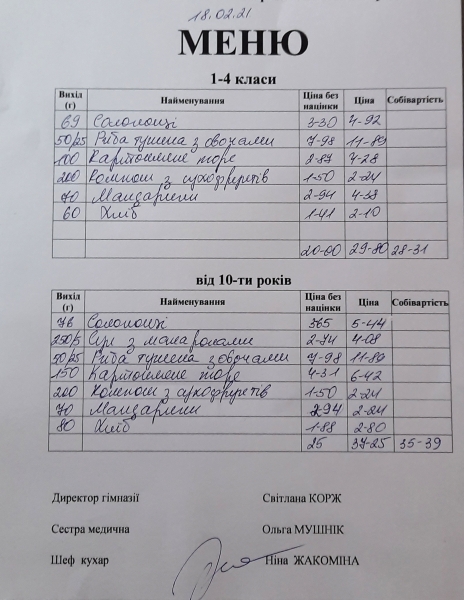 18.02.21
МЕНЮ
1-4 класи
Вихід (г) Найменування Ціна без націнки Ціна Собівартість
69 Солопощі 3-30 4-92
50/25 Риба тушена з овочами 7-98 11-89
100 Картопляне пюре 2-87 4-28
200 Компот з сухофруктів 1-50 2-24
70 Мандарини 2-94 4-38
60 Хліб 1-41 2-10
20-00 29-80 28-31
від 10-ти років
Вихід (г) Найменування Ціна без націнки Ціна Собівартість
76 Солопощі 365 5-44
250/5 Суп з макаронами 2-74 4-08
50/25 Риба тушена з овочами 7-98 11-89
150 Картопляне пюре 4-31 6-42
200 Компот з сухофруктів 1-50 2-24
70 Мандарини 2-94 2-24
80 Хліб 1-88 2-80
25 37-25 35-39
Директор гімназії Світлана КОРЖ
Сестра медична Ольга МУШНІК
Шеф кухар Ніна ЖАКОМІНА